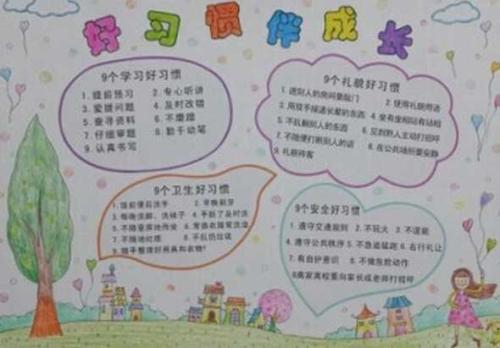 好习惯伴成长
9个学习好习惯
1. 提前预习 2. 专心听讲
3. 爱提问题 4. 及时改错
5. 查寻资料 6. 不磨蹭
7. 仔细审题 8. 勤于动笔
9. 认真书写
9个礼貌好习惯
1. 进别人的房间要敲门 2. 使用礼貌用语
3. 用双手接递长辈的东西 4. 坐有坐相站有站相
5. 不乱翻别人的东西 6. 见到熟人主动打招呼
7. 不随便打断别人的话 8. 在公共场所要安静
9. 礼貌待客
9个卫生好习惯
1. 饭前便后洗手 2. 早晚刷牙
3. 每晚洗脚、洗袜子 4. 手脏了及时洗
5. 不随意席地而坐 6. 常德衣服常洗澡
7. 不随地吐痰 8. 不乱扔垃圾
9. 随手整理好用具和衣物!
9个安全好习惯
1. 遵守交通规则 2. 不玩火 3. 不逞能
4. 遵守公共秩序 5. 不急追猛跑 6. 右行礼让
7. 有自护意识 8. 不做危险动作
9离家离校要向家长或老师打招呼